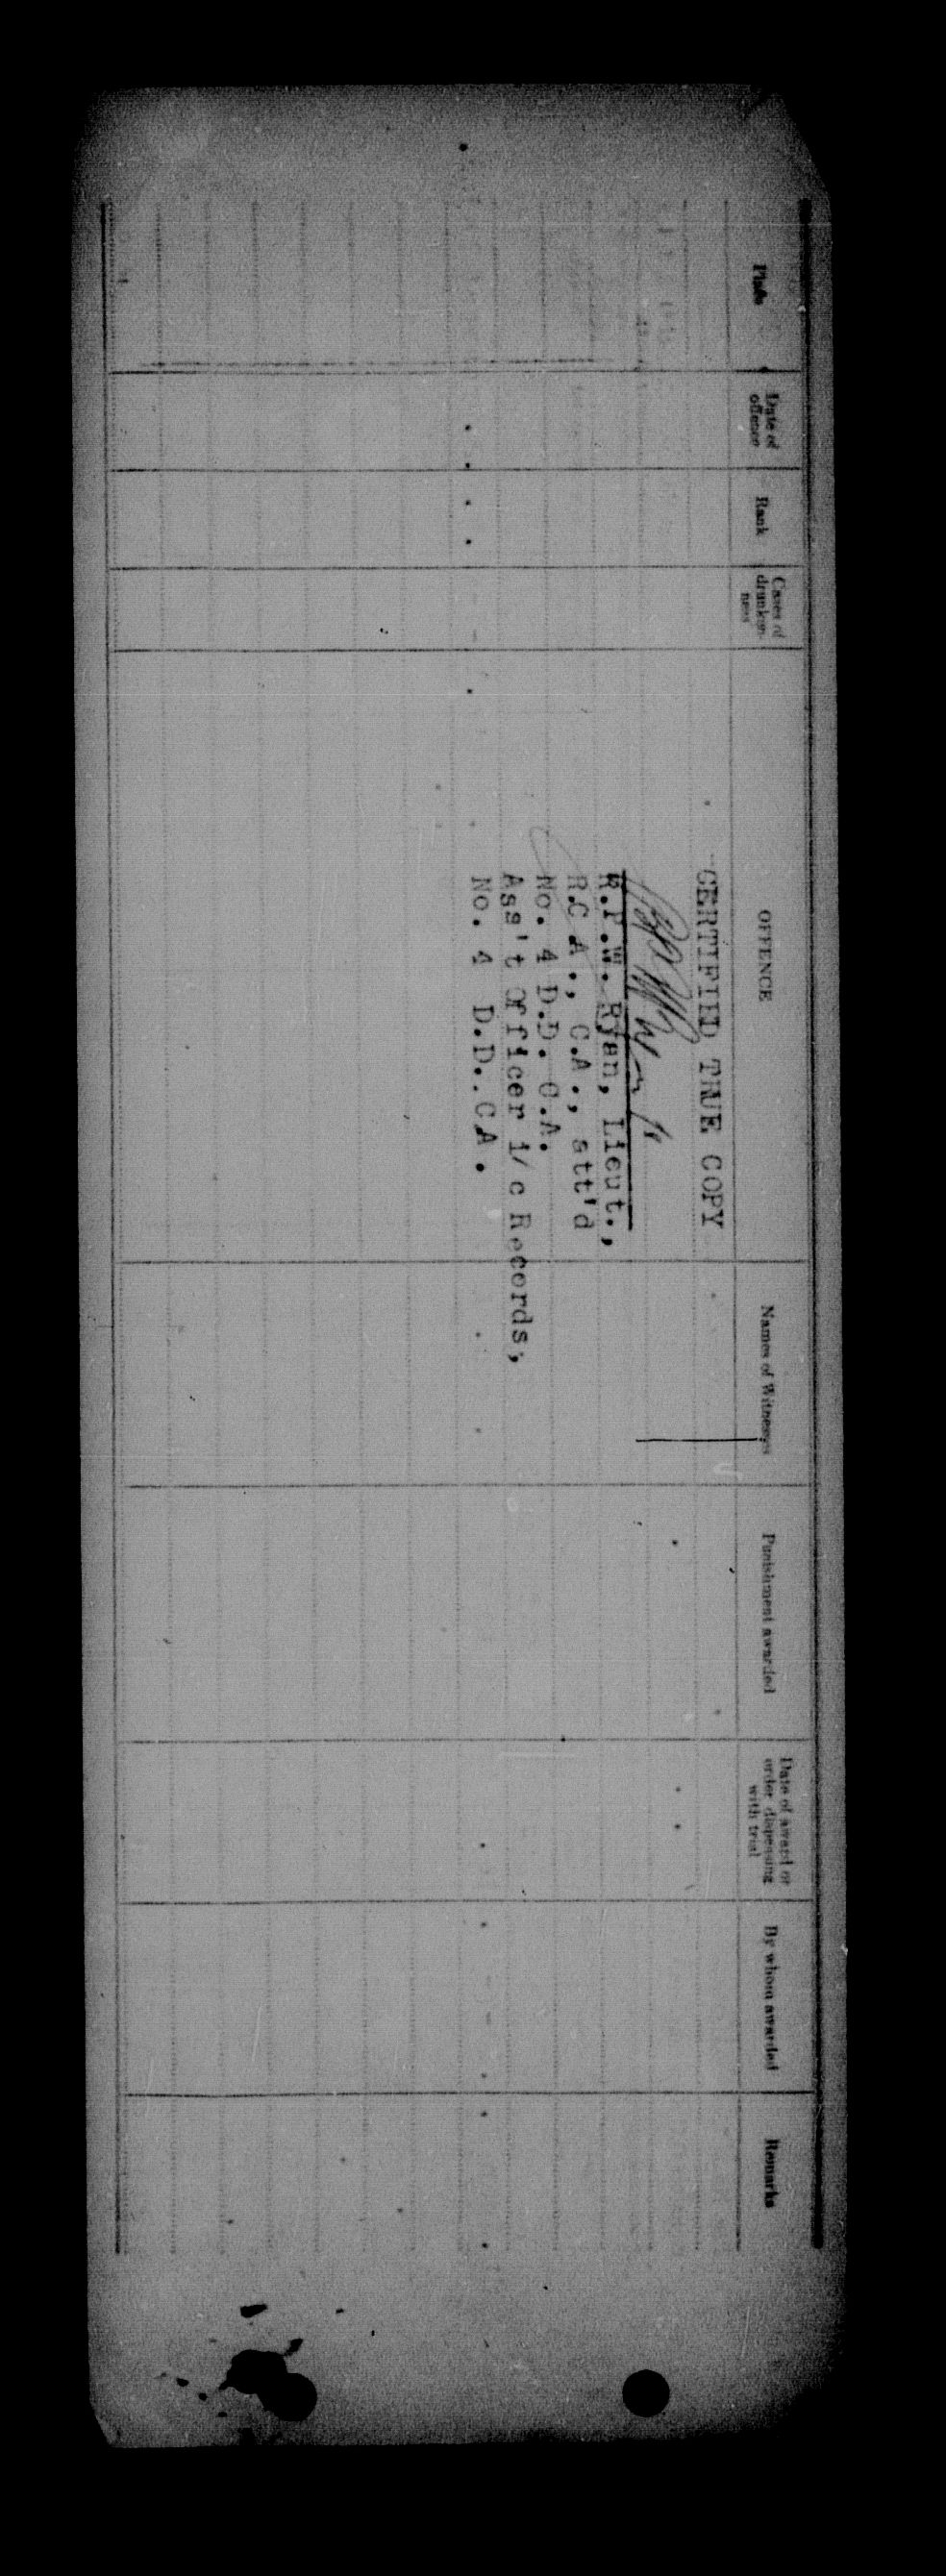 Place
Date of
offence
Rank
Cases of
drunken-
ness
OFFENCE
Names of Witnesses
Punishment awarded
Date of award or
order dispensing
with trial
By whom awarded
Remarks
CERTIFIED TRUE COPY
R.P.W. Ryan, Lieut.,
R.C A., C.A., att'd
No. 4 D.D. C.A.
Ass't Officer i/c Records,
No. 4 D.D..CA.